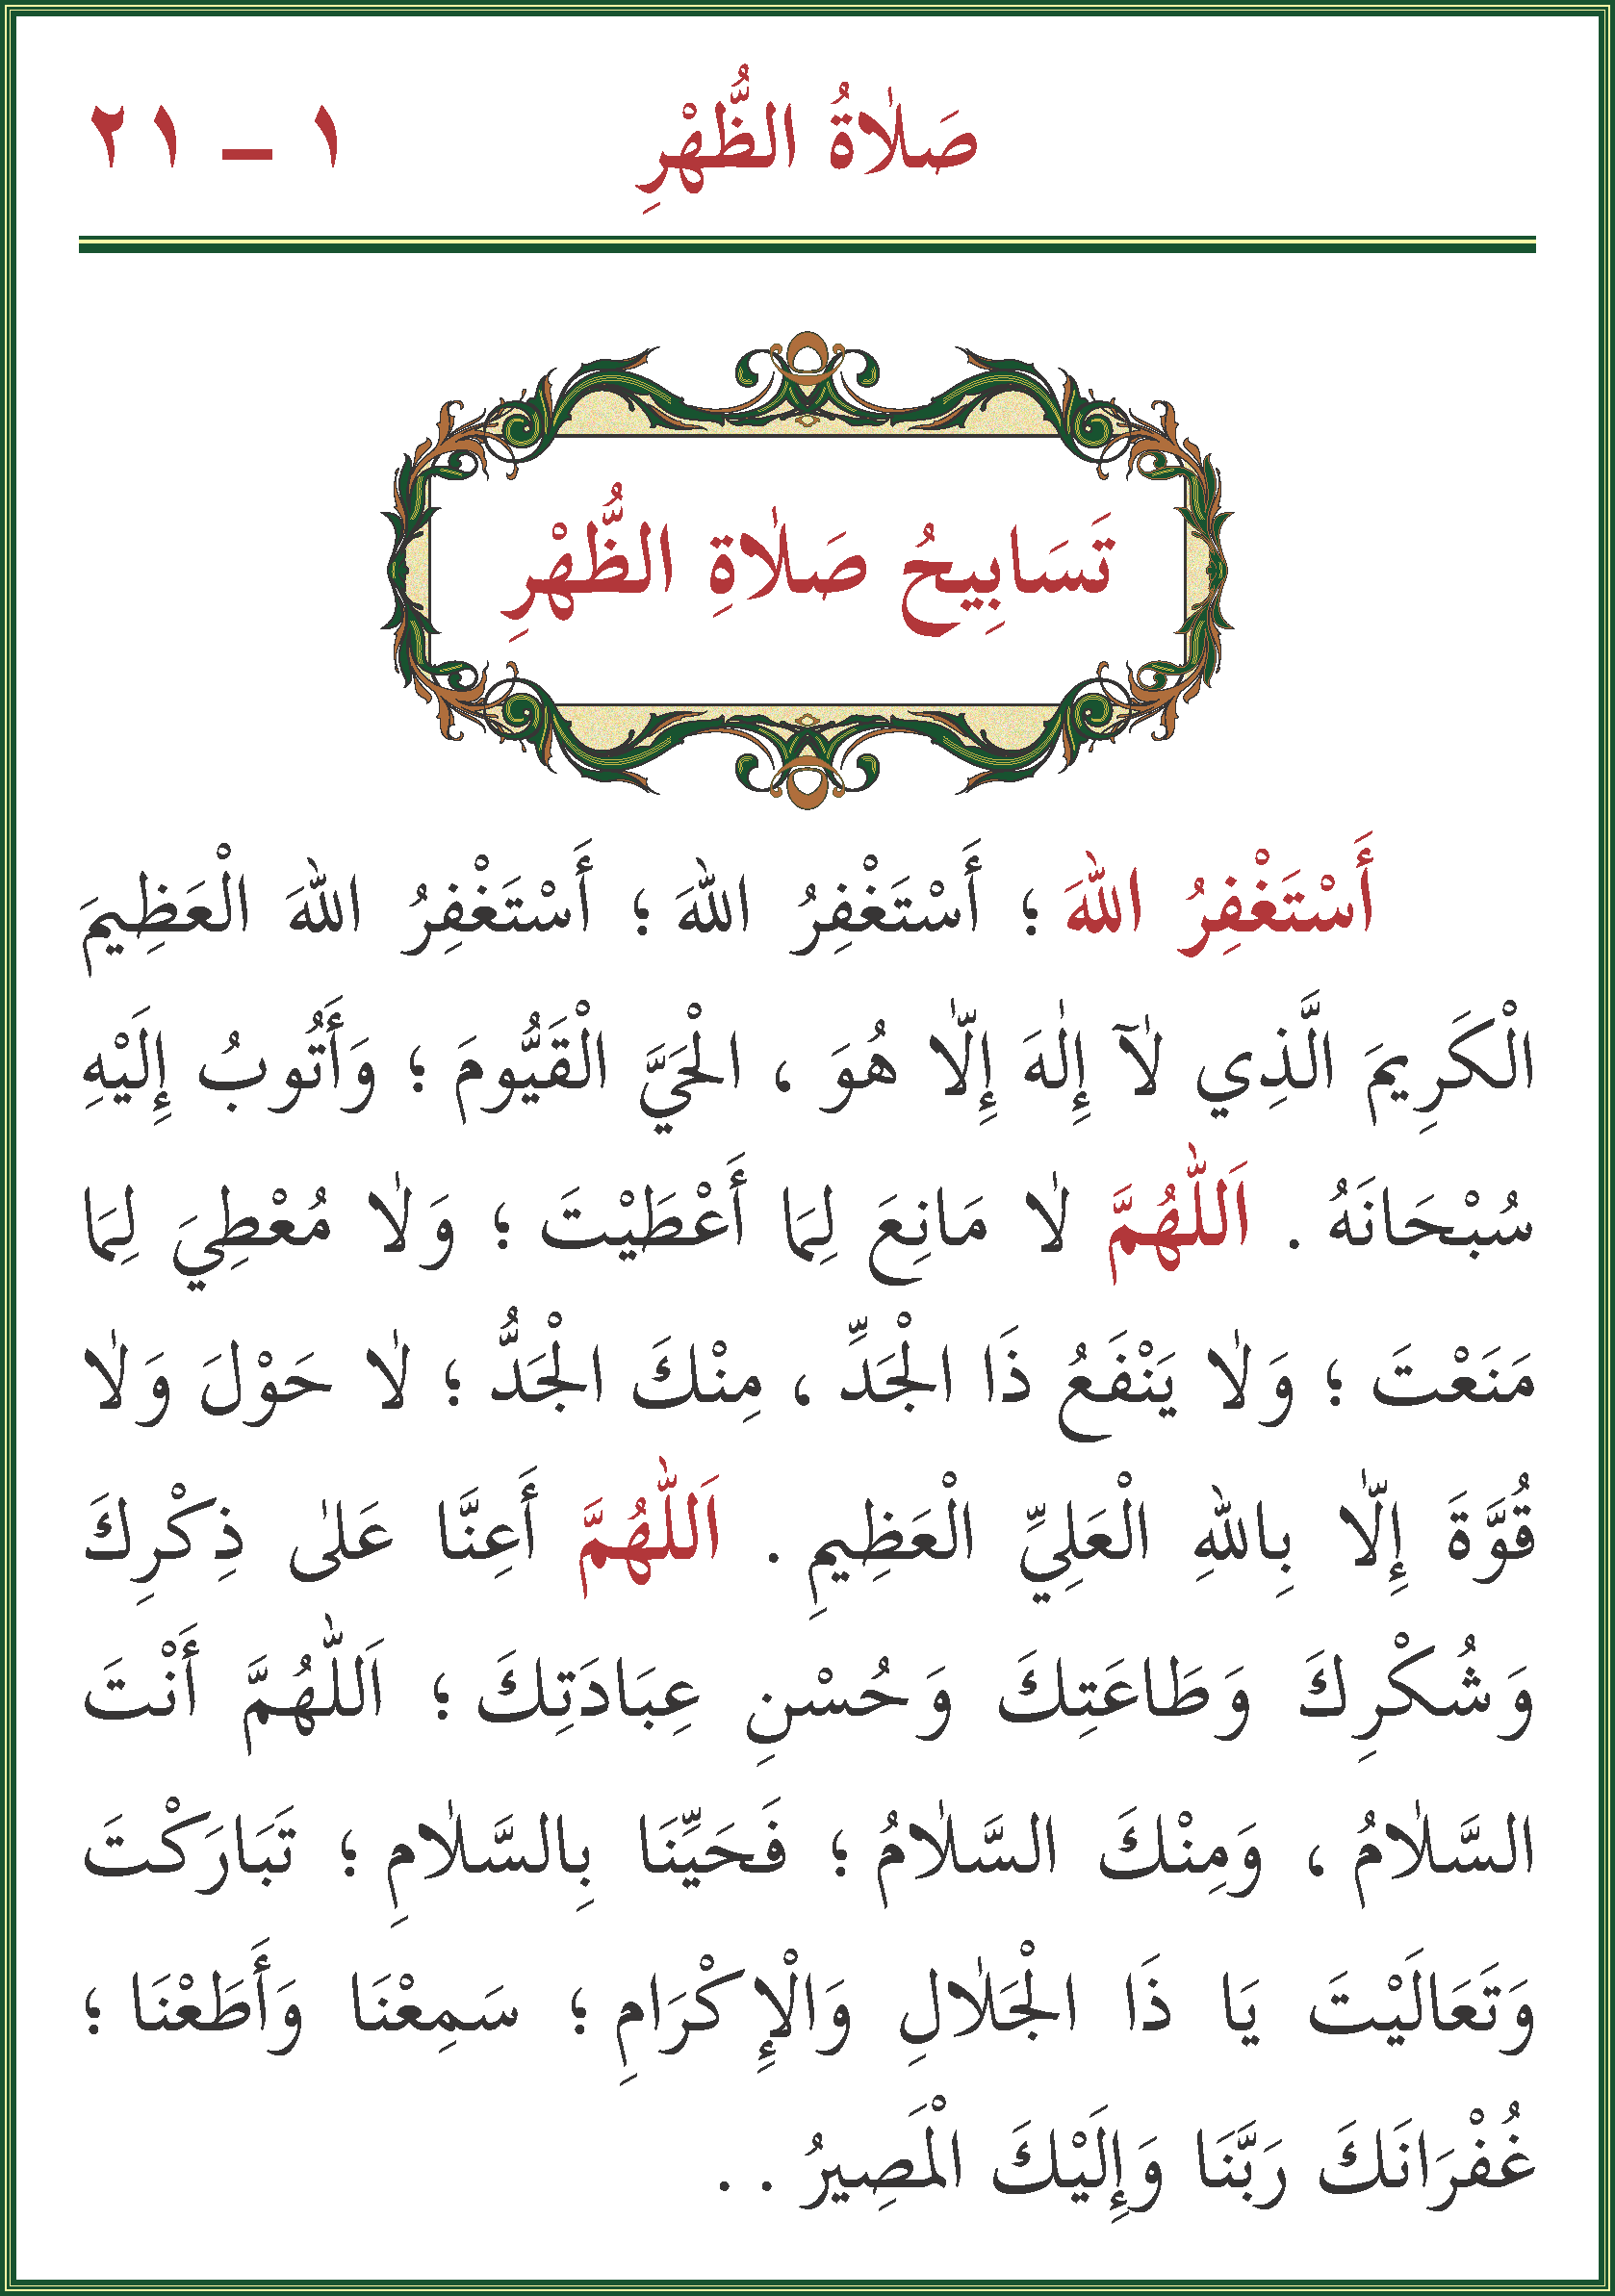 صَلٰاةُ الظُّهْرِ ١ – ٢١
تَسَابِيحُ صَلٰاةِ الظُّهْرِ
أَسْتَغْفِرُ اللهَ ؛ أَسْتَغْفِرُ اللهَ ؛ أَسْتَغْفِرُ اللهَ الْعَظِيمَ
الْكَرِيمَ الَّذِي لٰآ إِلٰهَ إِلّٰا هُوَ ، الْحَيَّ الْقَيُّومَ ؛ وَأَتُوبُ إِلَيْهِ
سُبْحَانَهُ . اَللّٰهُمَّ لٰا مَانِعَ لِمَا أَعْطَيْتَ ؛ وَلٰا مُعْطِيَ لِمَا
مَنَعْتَ ؛ وَلٰا يَنْفَعُ ذَا الْجَدِّ ، مِنْكَ الْجَدُّ ؛ لٰا حَوْلَ وَلٰا
قُوَّةَ إِلّٰا بِاللهِ الْعَلِيِّ الْعَظِيمِ . اَللّٰهُمَّ أَعِنَّا عَلىٰ ذِكْرِكَ
وَشُكْرِكَ وَطَاعَتِكَ وَحُسْنِ عِبَادَتِكَ ؛ اَللّٰهُمَّ أَنْتَ
السَّلٰامُ ، وَمِنْكَ السَّلٰامُ ؛ فَحَيِّنَا بِالسَّلٰامِ ؛ تَبَارَكْتَ
وَتَعَالَيْتَ يَا ذَا الْجَلٰالِ وَالْإِكْرَامِ ؛ سَمِعْنَا وَأَطَعْنَا ؛
غُفْرَانَكَ رَبَّنَا وَإِلَيْكَ الْمَصِيرُ . .